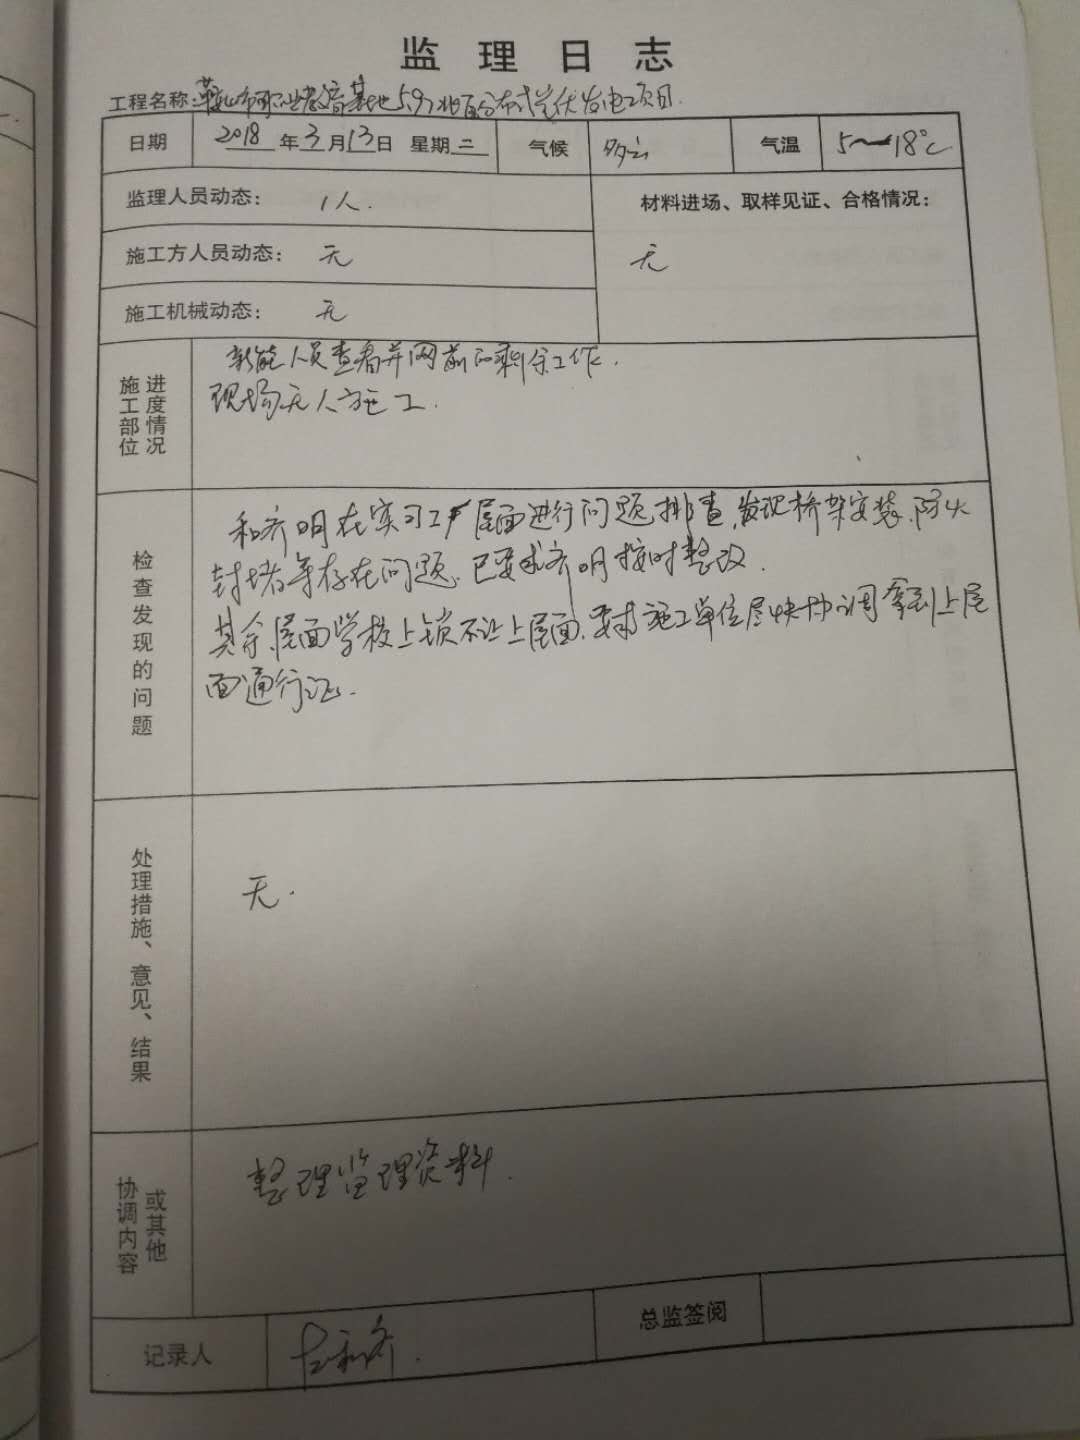 监理日志
工程名称:市职业教育基地5.97兆瓦分布式光伏发电项目.
日期 2018年3月13日 星期二 气候 多云 气温 5~18℃
监理人员动态: 1人.
材料进场、取样见证、合格情况:
施工方人员动态: 无
无
施工机械动态: 无
施工部位
进度情况
新能人员查看并网前的剩余工作.
现场无人施工.
检查发现的问题
和齐明在实习工厂屋面进行问题排查,发现桥架安装、防火
封堵等存在问题,已要求齐明按时整改.
其余屋面学校上锁不让上屋面,要求施工单位尽快协调拿到上屋
面通行证.
处理措施、意见、结果
无.
协调内容
或其他
整理监理资料.
记录人
总监签阅